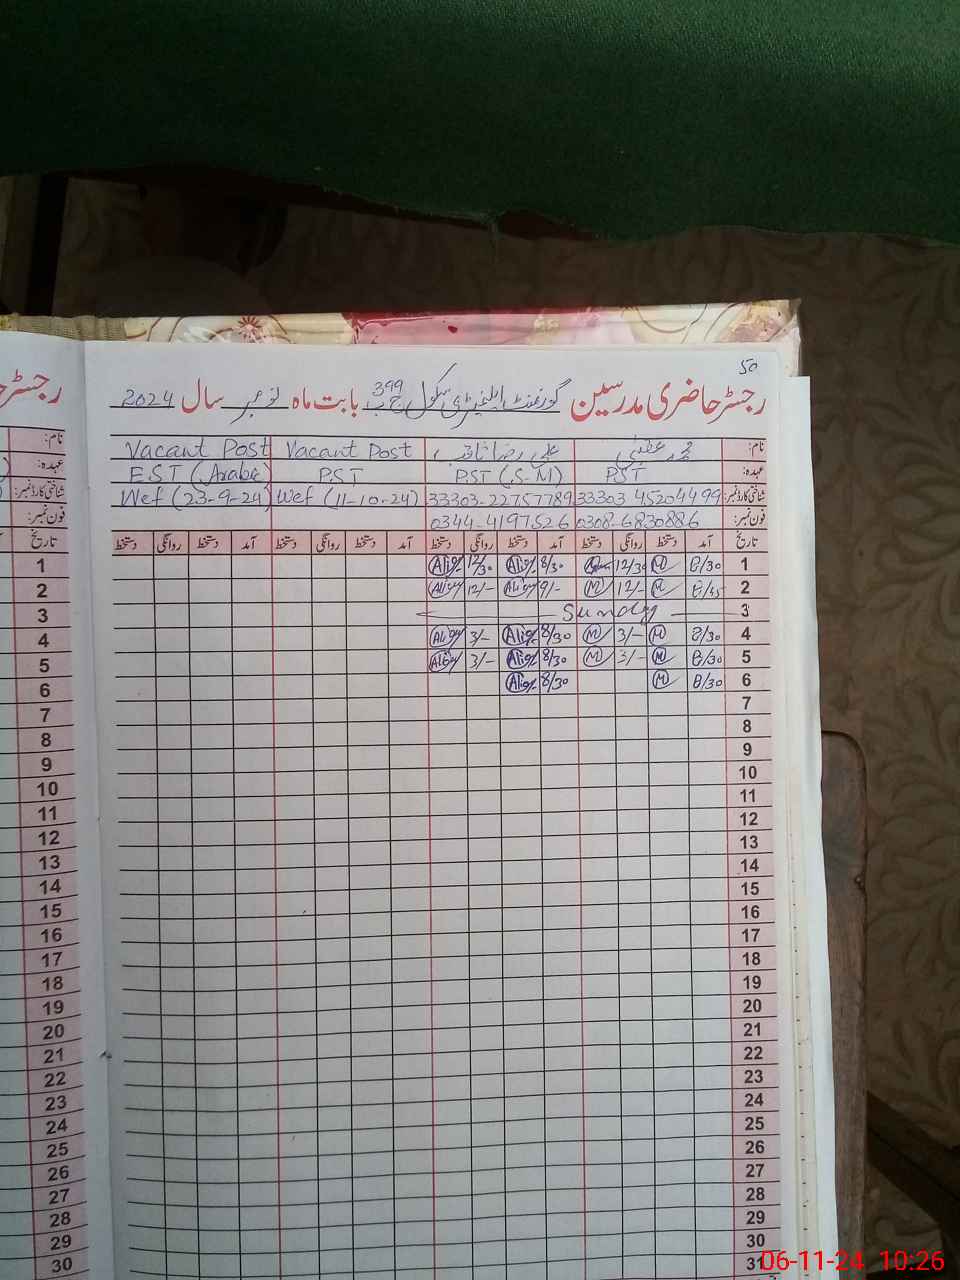 50
رجسٹر حاضری مدرسین گورنمنٹ ایلیمنٹری سکول 399 ج ب بابت ماہ نومبر سال 2024
نام: محمد علی رضا ثاقب Vacant Post Vacant Post
عہدہ: PST PST (S-M) PST EST (Arabic)
شناختی کارڈ نمبر: 33303 45204499 33303-22757789 Wef (11-10-24) Wef (23-9-24)
فون نمبر: 0308-6830886 0344-4197526
تاریخ آمد دستخط روانگی دستخط آمد دستخط روانگی دستخط آمد دستخط روانگی دستخط آمد دستخط روانگی دستخط
1 8/30 M 12/30 8/30 Alig 12/30 Alig
2 8/45 M 12/- M 9/- Alig 12/- Alig
3 Sunday
4 8/30 M 3/- M 8/30 Alig 3/- Alig
5 8/30 M 3/- M 8/30 Alig 3/- Alig
6 8/30 M 8/30 Alig
7
8
9
10
11
12
13
14
15
16
17
18
19
20
21
22
23
24
25
26
27
28
29
30
31
رجسٹر
نام:
عہدہ:
شناختی کارڈ نمبر:
فون نمبر:
تاریخ
1
2
3
4
5
6
7
8
9
10
11
12
13
14
15
16
17
18
19
20
21
22
23
24
25
26
27
28
29
30
06-11-24 10:26